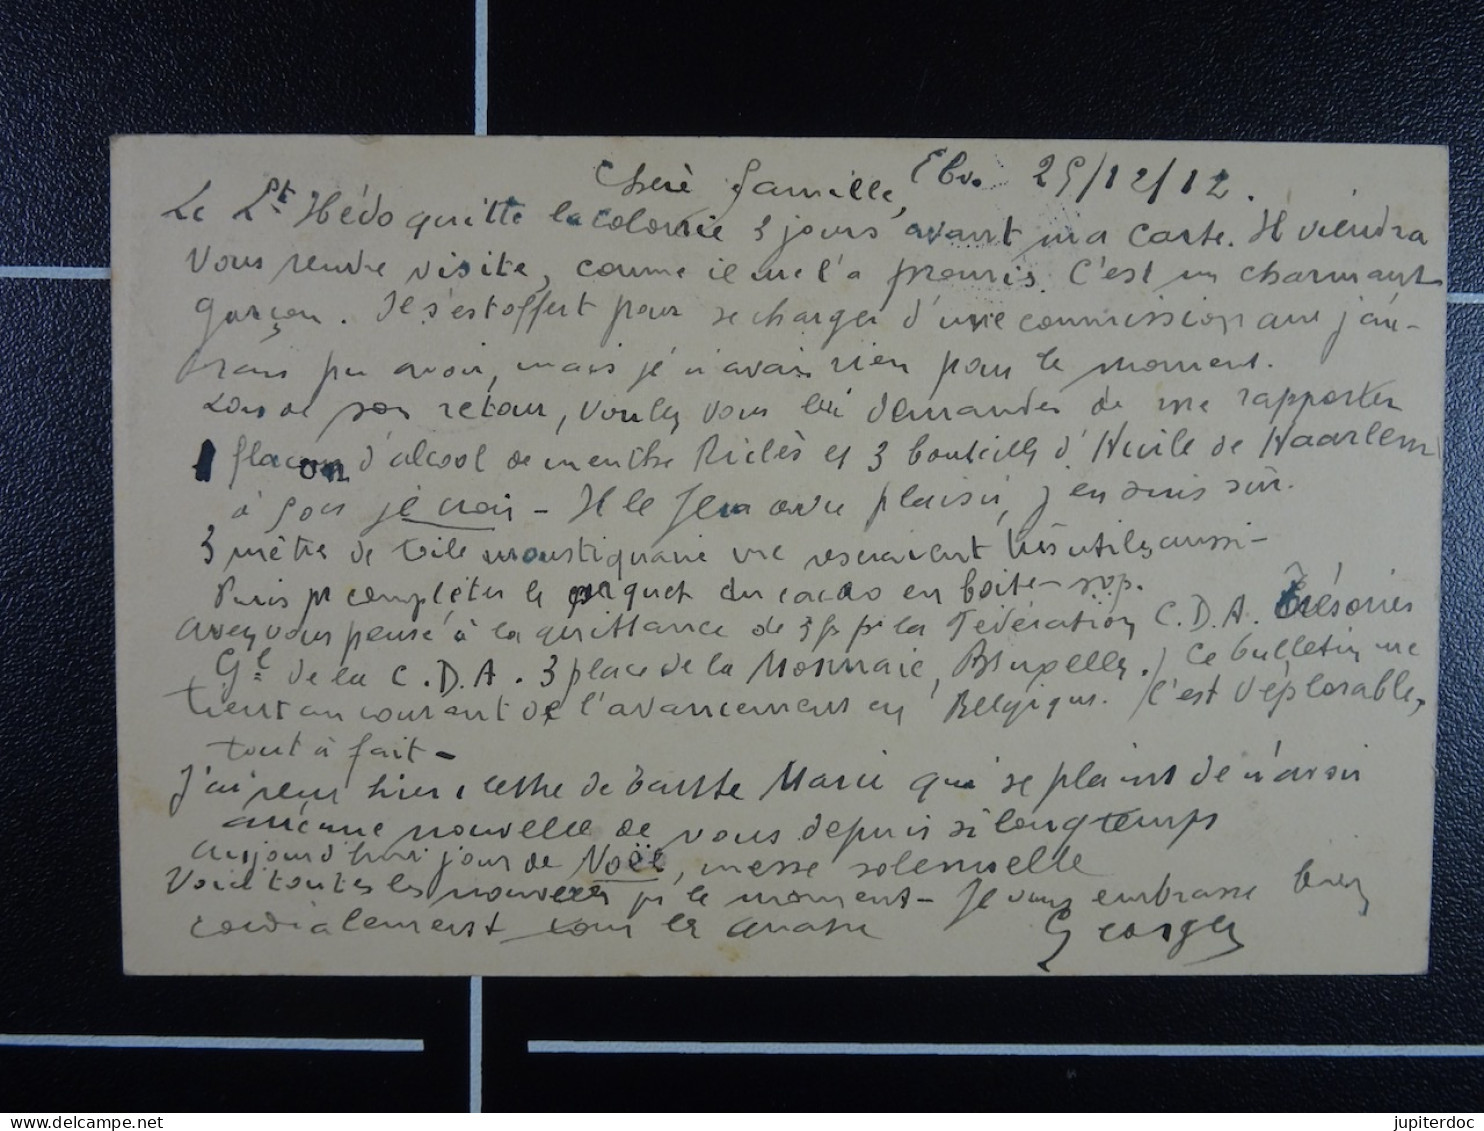 Chère famille, Ebo. 25/12/12.
Le Lt Hédo quitte la colonie 3 jours avant ma carte. Il viendra
vous rendre visite, comme il me l'a promis. C'est un charmant
garçon. Il s'est offert pour se charger d'une commission que j'au-
rais pu avoir, mais je n'avais rien pour le moment.
Lors de son retour, voulez vous lui demander de me rapporter
1 flacon d'alcool de menthe Riclès et 3 bouteilles d'Huile de Haarlem
à je crois - Il le fera avec plaisir, j'en suis sûr.
3 mètres de toile moustiquaire me seraient très utiles aussi -
Puis pr compléter le paquet du cacao en boite - svp.
Avez vous pensé à la quittance de 3f pr la Fédération C.D.A. Trésorier
Gl de la C.D.A. 3 place de la Monnaie, Bruxelles.) Ce bulletin me
tient au courant de l'avancement en Belgique. C'est déplorable,
tout à fait -
J'ai reçu hier 1 lettre de Marie qui se plaint de n'avoir
aucune nouvelle de vous depuis si longtemps
aujourd'hui jour de Noël, messe solennelle
Voici toutes les nouvelles pr le moment - Je vous embrasse bien
cordialement tous les quatre Georges
jupiterdoc
delcampe.net